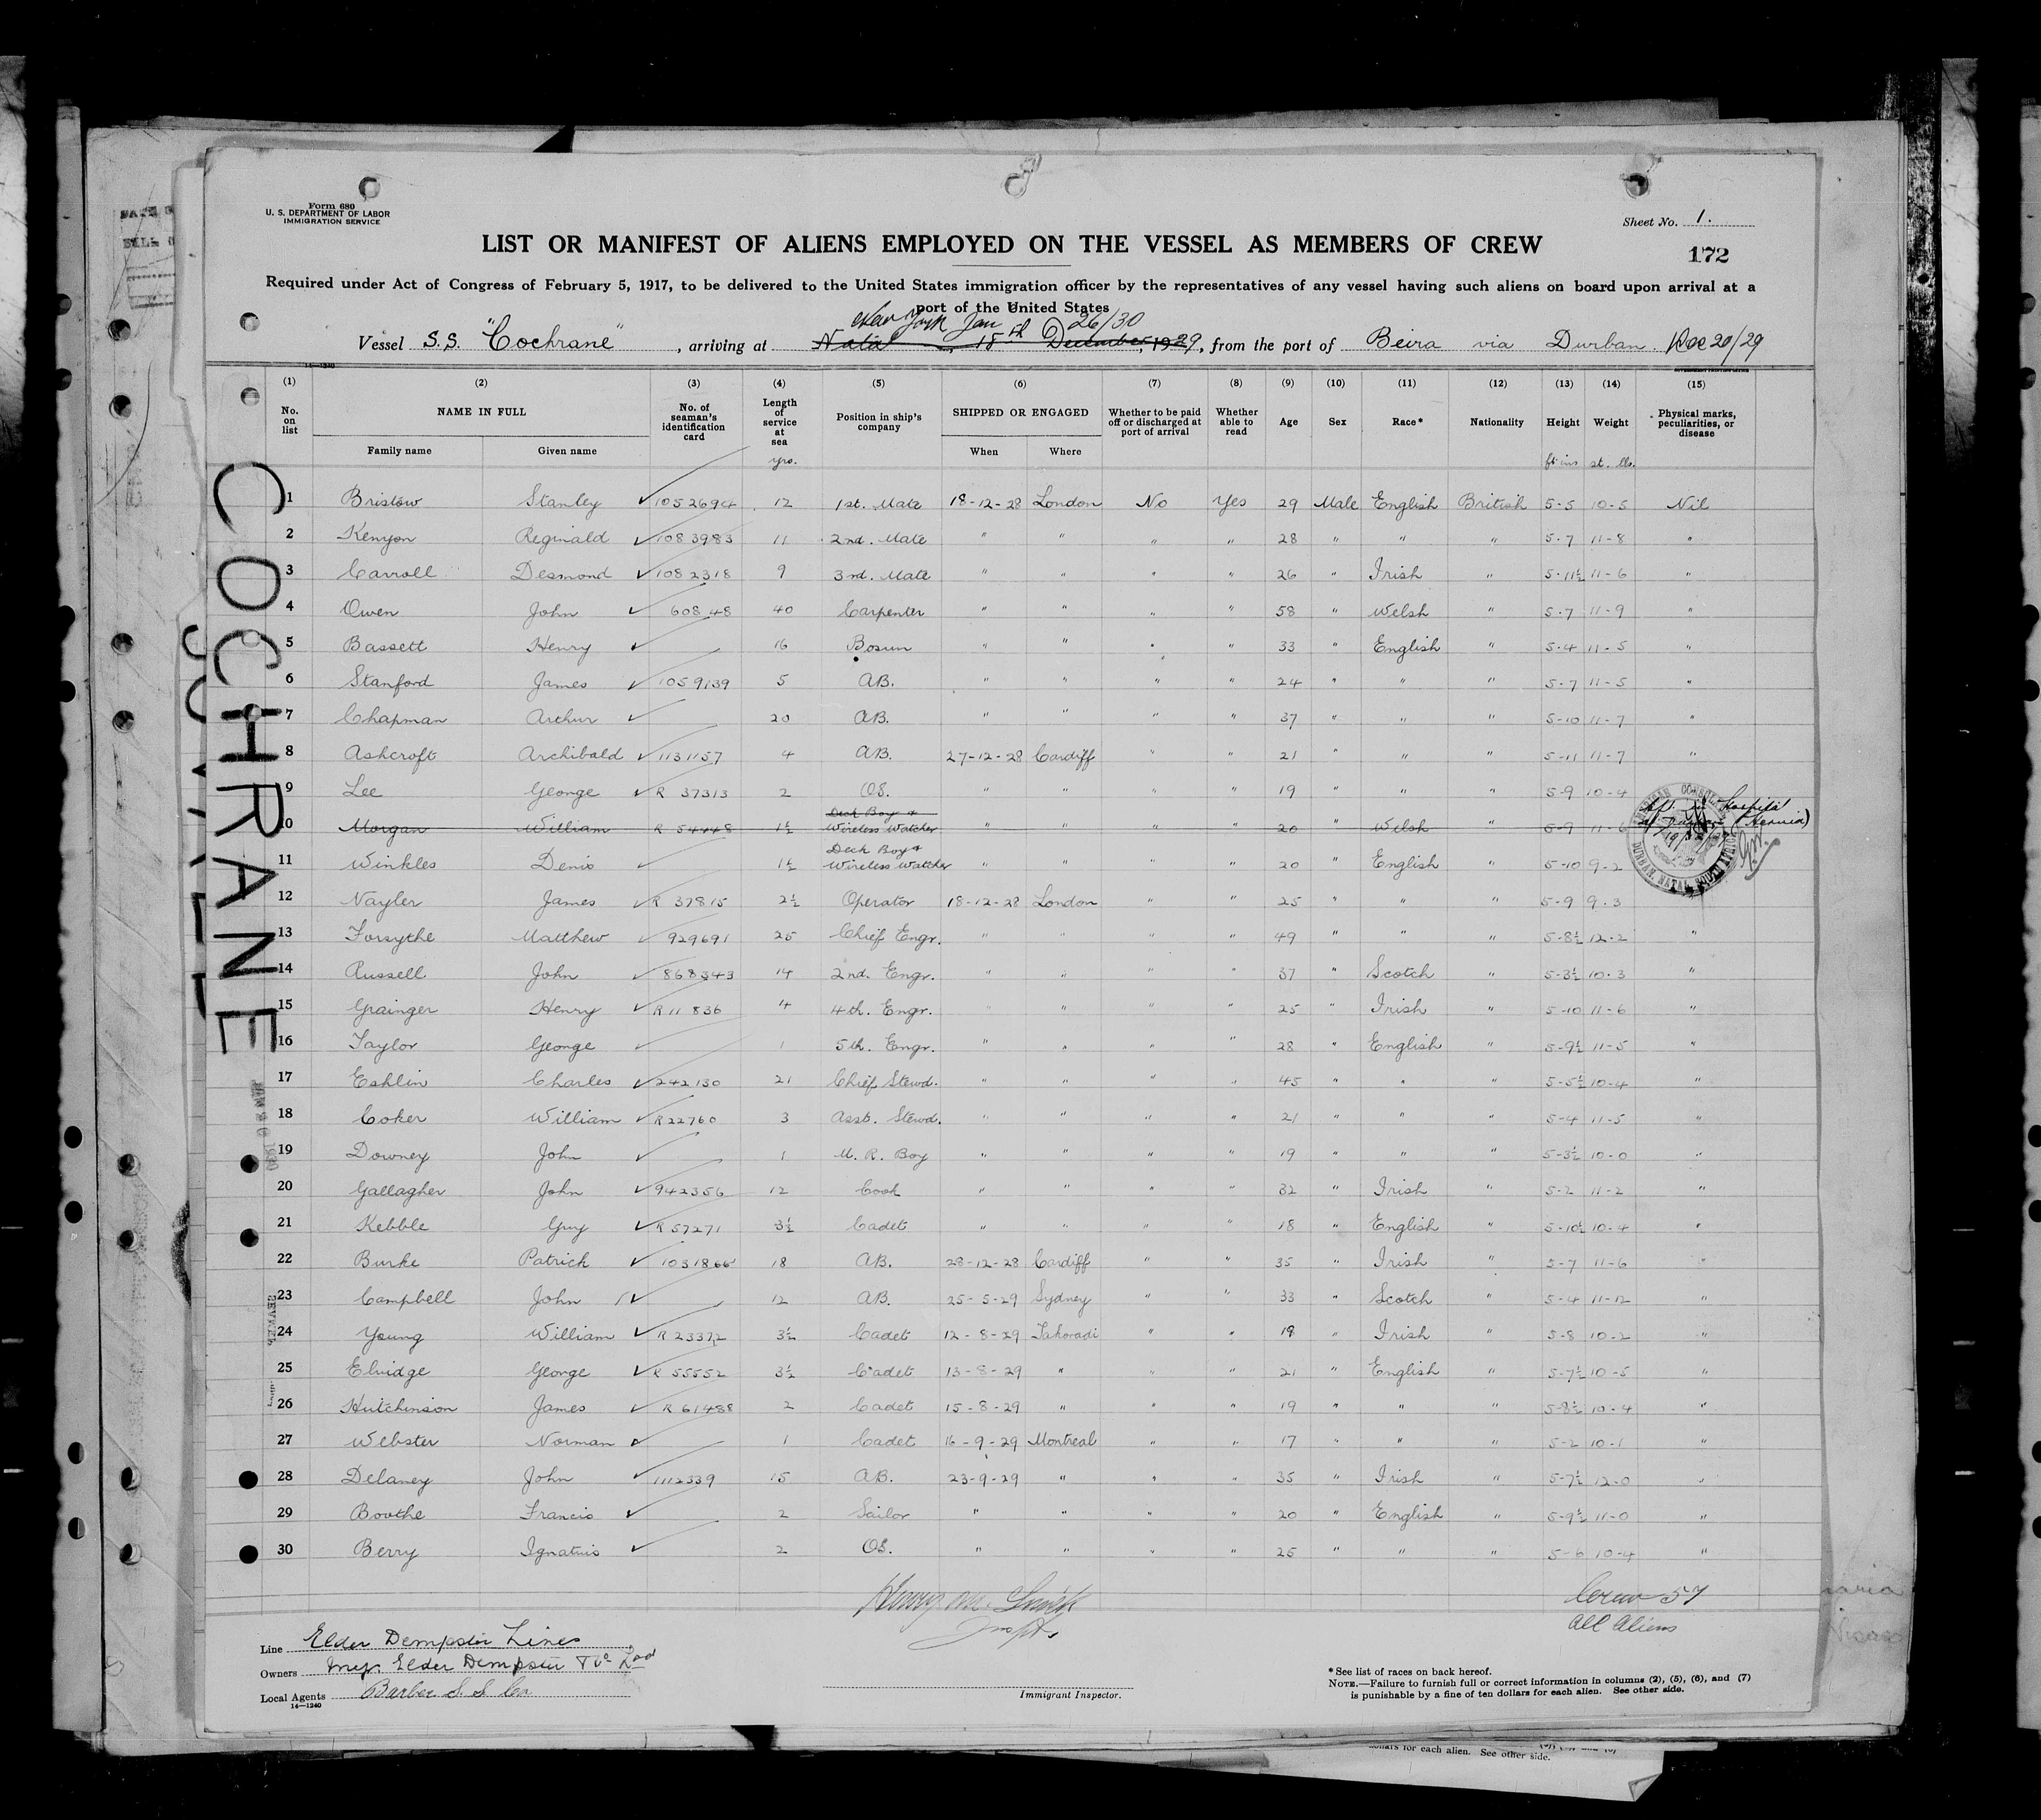 Form 680
U. S. DEPARTMENT OF LABOR
IMMIGRATION SERVICE
Sheet No. 1.
172
LIST OR MANIFEST OF ALIENS EMPLOYED ON THE VESSEL AS MEMBERS OF CREW
Required under Act of Congress of February 5, 1917, to be delivered to the United States immigration officer by the representatives of any vessel having such aliens on board upon arrival at a
port of the United States
New York Jan 26/30
Vessel S.S. "Cochrane", arriving at Natal, 18th December, 1929, from the port of Beira via Durban. Dec 20/29
14—1240
(1) (2) (3) (4) (5) (6) (7) (8) (9) (10) (11) (12) (13) (14) (15)
No. on list NAME IN FULL No. of seaman's identification card Length of service at sea Position in ship's company SHIPPED OR ENGAGED Whether to be paid off or discharged at port of arrival Whether able to read Age Sex Race* Nationality Height Weight Physical marks, peculiarities, or disease
Family name Given name yrs. When Where ft ins st. lbs.
1 Bristow Stanley 1052694 12 1st. Mate 18-12-28 London No Yes 29 Male English British 5-5 10-5 Nil
2 Kenyon Reginald 1083983 11 2nd. Mate " " " " 28 " " " 5-7 11-8 "
3 Carroll Desmond 1082318 9 3rd. Mate " " " " 26 " Irish " 5-11½ 11-6 "
4 Owen John 60848 40 Carpenter " " " " 58 " Welsh " 5-7 11-9 "
5 Bassett Henry 16 Bosun " " " " 33 " English " 5-4 11-5 "
6 Stanford James 1059139 5 AB. " " " " 24 " " " 5-7 11-5 "
7 Chapman Arthur 20 AB. " " " " 37 " " " 5-10 11-7 "
8 Ashcroft Archibald 1131157 4 AB. 27-12-28 Cardiff " " 21 " " " 5-11 11-7 "
9 Lee George R 37313 2 OS. " " " " 19 " " " 5-9 10-4
10 Morgan William R 54448 1½ Deck Boy & Wireless Watcher " " " " 20 " Welsh " 5-9 11-6 Left in Hospital at Durban (Hernia)
AMERICAN CONSULATE DURBAN, NATAL, SOUTH AFRICA
11 Winkles Denis 1½ Deck Boy & Wireless Watcher " " " " 20 " English " 5-10 9-2
12 Nayler James R 37815 2½ Operator 18-12-28 London " " 25 " " " 5-9 9-3
13 Forsythe Matthew 929691 25 Chief Engr. " " " " 49 " " " 5-8½ 12-2 "
14 Russell John 868343 14 2nd. Engr. " " " " 37 " Scotch " 5-3½ 10-3 "
15 Grainger Henry R 11836 4 4th. Engr. " " " " 25 " Irish " 5-10 11-6 "
16 Taylor George 1 5th. Engr. " " " " 28 " English " 5-9½ 11-5 "
17 Eshlin Charles 242130 21 Chief Stewd. " " " " 45 " " " 5-5½ 10-4 "
18 Coker William R22760 3 Asst. Stewd. " " " " 21 " " " 5-4 11-5 "
19 Downey John 1 M. R. Boy " " " " 19 " " " 5-3½ 10-0 "
20 Gallagher John 942356 12 Cook " " " " 32 " Irish " 5-2 11-2 "
21 Kebble Guy R 57271 3½ Cadet " " " " 18 " English " 5-10½ 10-4 "
22 Burke Patrick 1031866 18 AB. 28-12-28 Cardiff " " 35 " Irish " 5-7 11-6 "
23 Campbell John 12 AB. 25-5-29 Sydney " " 33 " Scotch " 5-4 11-12 "
24 Young William R 23372 3½ Cadet 12-8-29 Takoradi " " 19 " Irish " 5-8 10-2 "
25 Elvidge George R 55552 3½ Cadet 13-8-29 " " " 21 " English " 5-7½ 10-5 "
26 Hutchinson James R 61488 2 Cadet 15-8-29 " " " 19 " " " 5-8½ 10-4 "
27 Webster Norman 1 Cadet 16-9-29 Montreal " " 17 " " " 5-2 10-1 "
28 Delaney John 1112339 15 AB. 23-9-29 " " " 35 " Irish " 5-7½ 12-0 "
29 Boothe Francis 2 Sailor " " " " 20 " English " 5-9½ 11-0 "
30 Berry Ignatius 2 OS. " " " " 25 " " " 5-6 10-4 "
COCHRANE
Crew 57
All Aliens
Line Elder Dempster Lines
Owners Elder Dempster
Local Agents Barber S. S. Co.
14—1240
Immigrant Inspector.
*See list of races on back hereof.
NOTE.—Failure to furnish full or correct information in columns (2), (5), (6), and (7)
is punishable by a fine of ten dollars for each alien. See other side.
dollars for each alien. See other side.